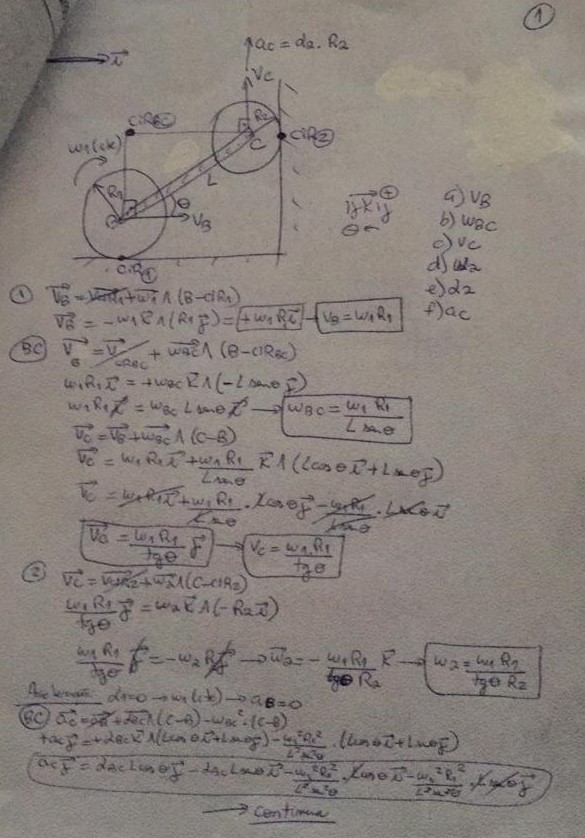 1
ac = α2.R2
i
Vc
CiRBC
R2
C
CiR2
w1(ck)
R1
L
θ
B
VB
CiR1
a) VB
b) wBC
c) Vc
d) w2
e) α2
f) ac
1 VB = VCiR1 + w1 ∧ (B-CiR1)
VB = -w1 k ∧ (R1 j) = +w1 R1 i VB = w1 R1
BC VB = VCiRBC + wBC ∧ (B-CiRBC)
w1 R1 i = +wBC k ∧ (-L senθ j)
w1 R1 i = wBC L senθ i → wBC = w1 R1 / L senθ
Vc = VB + wBC ∧ (C-B)
Vc = w1 R1 i + w1 R1 / L senθ k ∧ (L cosθ i + L senθ j)
Vc = w1 R1 i + w1 R1 / L senθ . L cosθ j - w1 R1 / L senθ . L senθ i
Vc = w1 R1 / tgθ j → Vc = w1 R1 / tgθ
2 Vc = VCiR2 + w2 ∧ (C-CiR2)
w1 R1 / tgθ j = w2 k ∧ (-R2 i)
w1 R1 / tgθ j = -w2 R2 j → w2 = - w1 R1 / tgθ R2 k → w2 = w1 R1 / tgθ R2
α1=0 → w1(ck) → aB=0
BC ac = aB + αBC ∧ (C-B) - wBC² . (C-B)
+ac j = +αBC k ∧ (L cosθ i + L senθ j) - w1² R1² / L² sen²θ . (L cosθ i + L senθ j)
ac j = αBC L cosθ j - αBC L senθ i - w1² R1² / L² sen²θ . L cosθ i - w1² R1² / L² sen²θ . L senθ j
→ continua